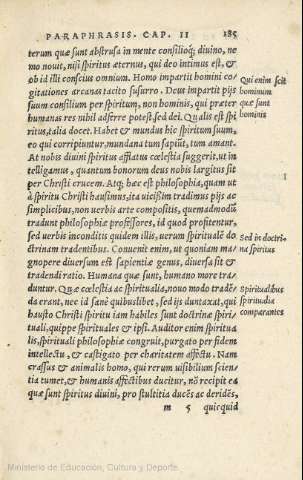 PARAPHRASIS. CAP. II 185
terum quæ sunt abstrusa in mente consilioq; diuino, ne
mo nouit, nisi spiritus æternus, qui deo intimus est, &
ob id illi conscius omnium. Homo impartit homini co
gitationes arcanas tacito susurro. Deus impartit pijs
suum consilium per spiritum, non hominis, qui præter
humanas res nihil adferre potest sed dei. Qualis est spi
ritus, talia docet. Habet & mundus hic spiritum suum,
eo qui corripiuntur, mundana tum sapiũt, tum amant.
At nobis diuini spiritus afflatus cœlestia suggerit, ut in
telligamus, quantum bonorum deus nobis largitus sit
per Christi crucem. Atq; hæc est philosophia, quam ut
à spiritu Christi hausimus, ita uicissim tradimus pijs ac
simplicibus, non uerbis arte compositis, quemadmodũ
tradunt philosophiæ professores, id quod profitentur,
sed uerbis inconditis quidem illis, uerum spiritualē do
ctrinam tradentibus. Conuenit enim, ut quoniam ma-
gnopere diuersum est sapientiæ genus, diuersa sit &
tradendi ratio. Humana quæ sunt, humano more tra/
duntur. Quæ cœlestia ac spiritualia, nouo modo tradē/
da erant, nec id sanè quibuslibet, sed ijs duntaxat, qui
hausto Christi spiritu iam habiles sunt doctrinæ spiri/
tuali, quippe spirituales & ipsi. Auditor enim spiritua
lis, spirituali philosophiæ congruit, purgato per fidem
intellectu, & castigato per charitatem affectu. Nam
crassus & animalis homo, qui rerum uisibilium scien/
tia tumet, & humanis affectibus ducitur, nō recipit ea
quæ sunt spiritus diuini, pro stultitia ducēs ac deridēs,
m 5 quicquid
Qui enim scit
hominum
quæ sunt
hominis
Sed in doctri/
na spiritus
Spiritualibus
spiritualia
comparantes
Ministerio de Educación, Cultura y Deporte